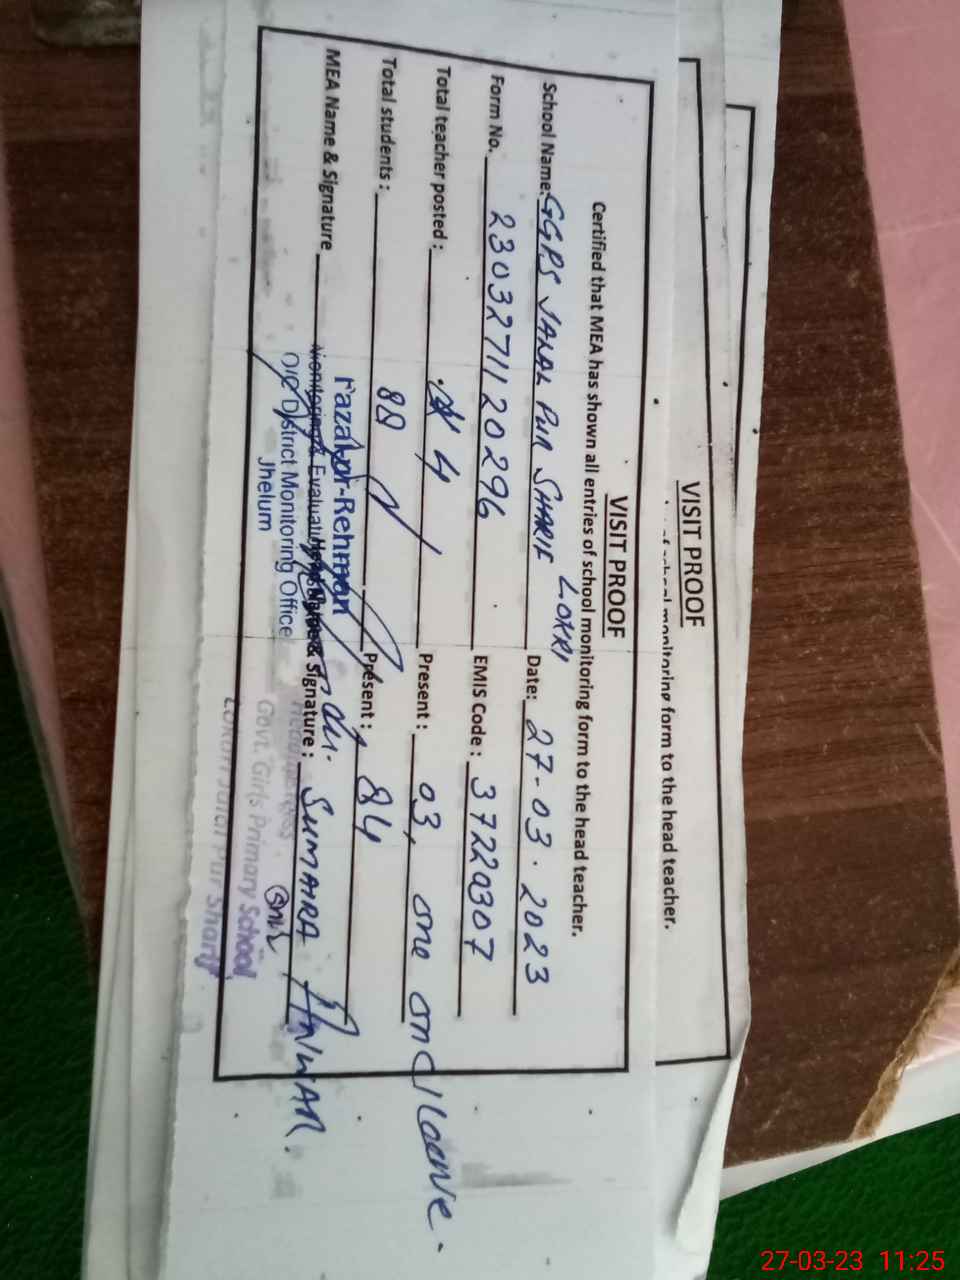 VISIT PROOF
school monitoring form to the head teacher.
VISIT PROOF
Certified that MEA has shown all entries of school monitoring form to the head teacher.
LOKRI
School Name: GGPS JALAL PUR SHARIF Date: 27-03.2023
Form No. 2303271120296 EMIS Code: 37220307
Total teacher posted: 4 Present: 03, one on Cl leave.
Total students: 88 Present: 84
Fazal-ur-Rehman
MEA Name & Signature Head Name & Signature: SUMAIRA ANWAR.
Monitoring & Evaluation
O/o District Monitoring Office
Jhelum
Govt. Girls Primary School
Lokri Jalal Pur Sharif
27-03-23 11:25